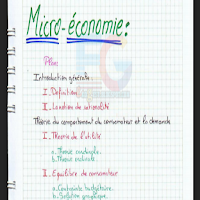 Micro-économie:
Plan:
Introduction générale
I. Définition
II. La notion de rationalité
Théorie du comportement du consommateur et la demande
I. Théorie de l'utilité
a. Théorie cardinale
b. Théorie ordinale
II. Equilibre du consommateur
a. Contrainte budgétaire
b. Solution graphique